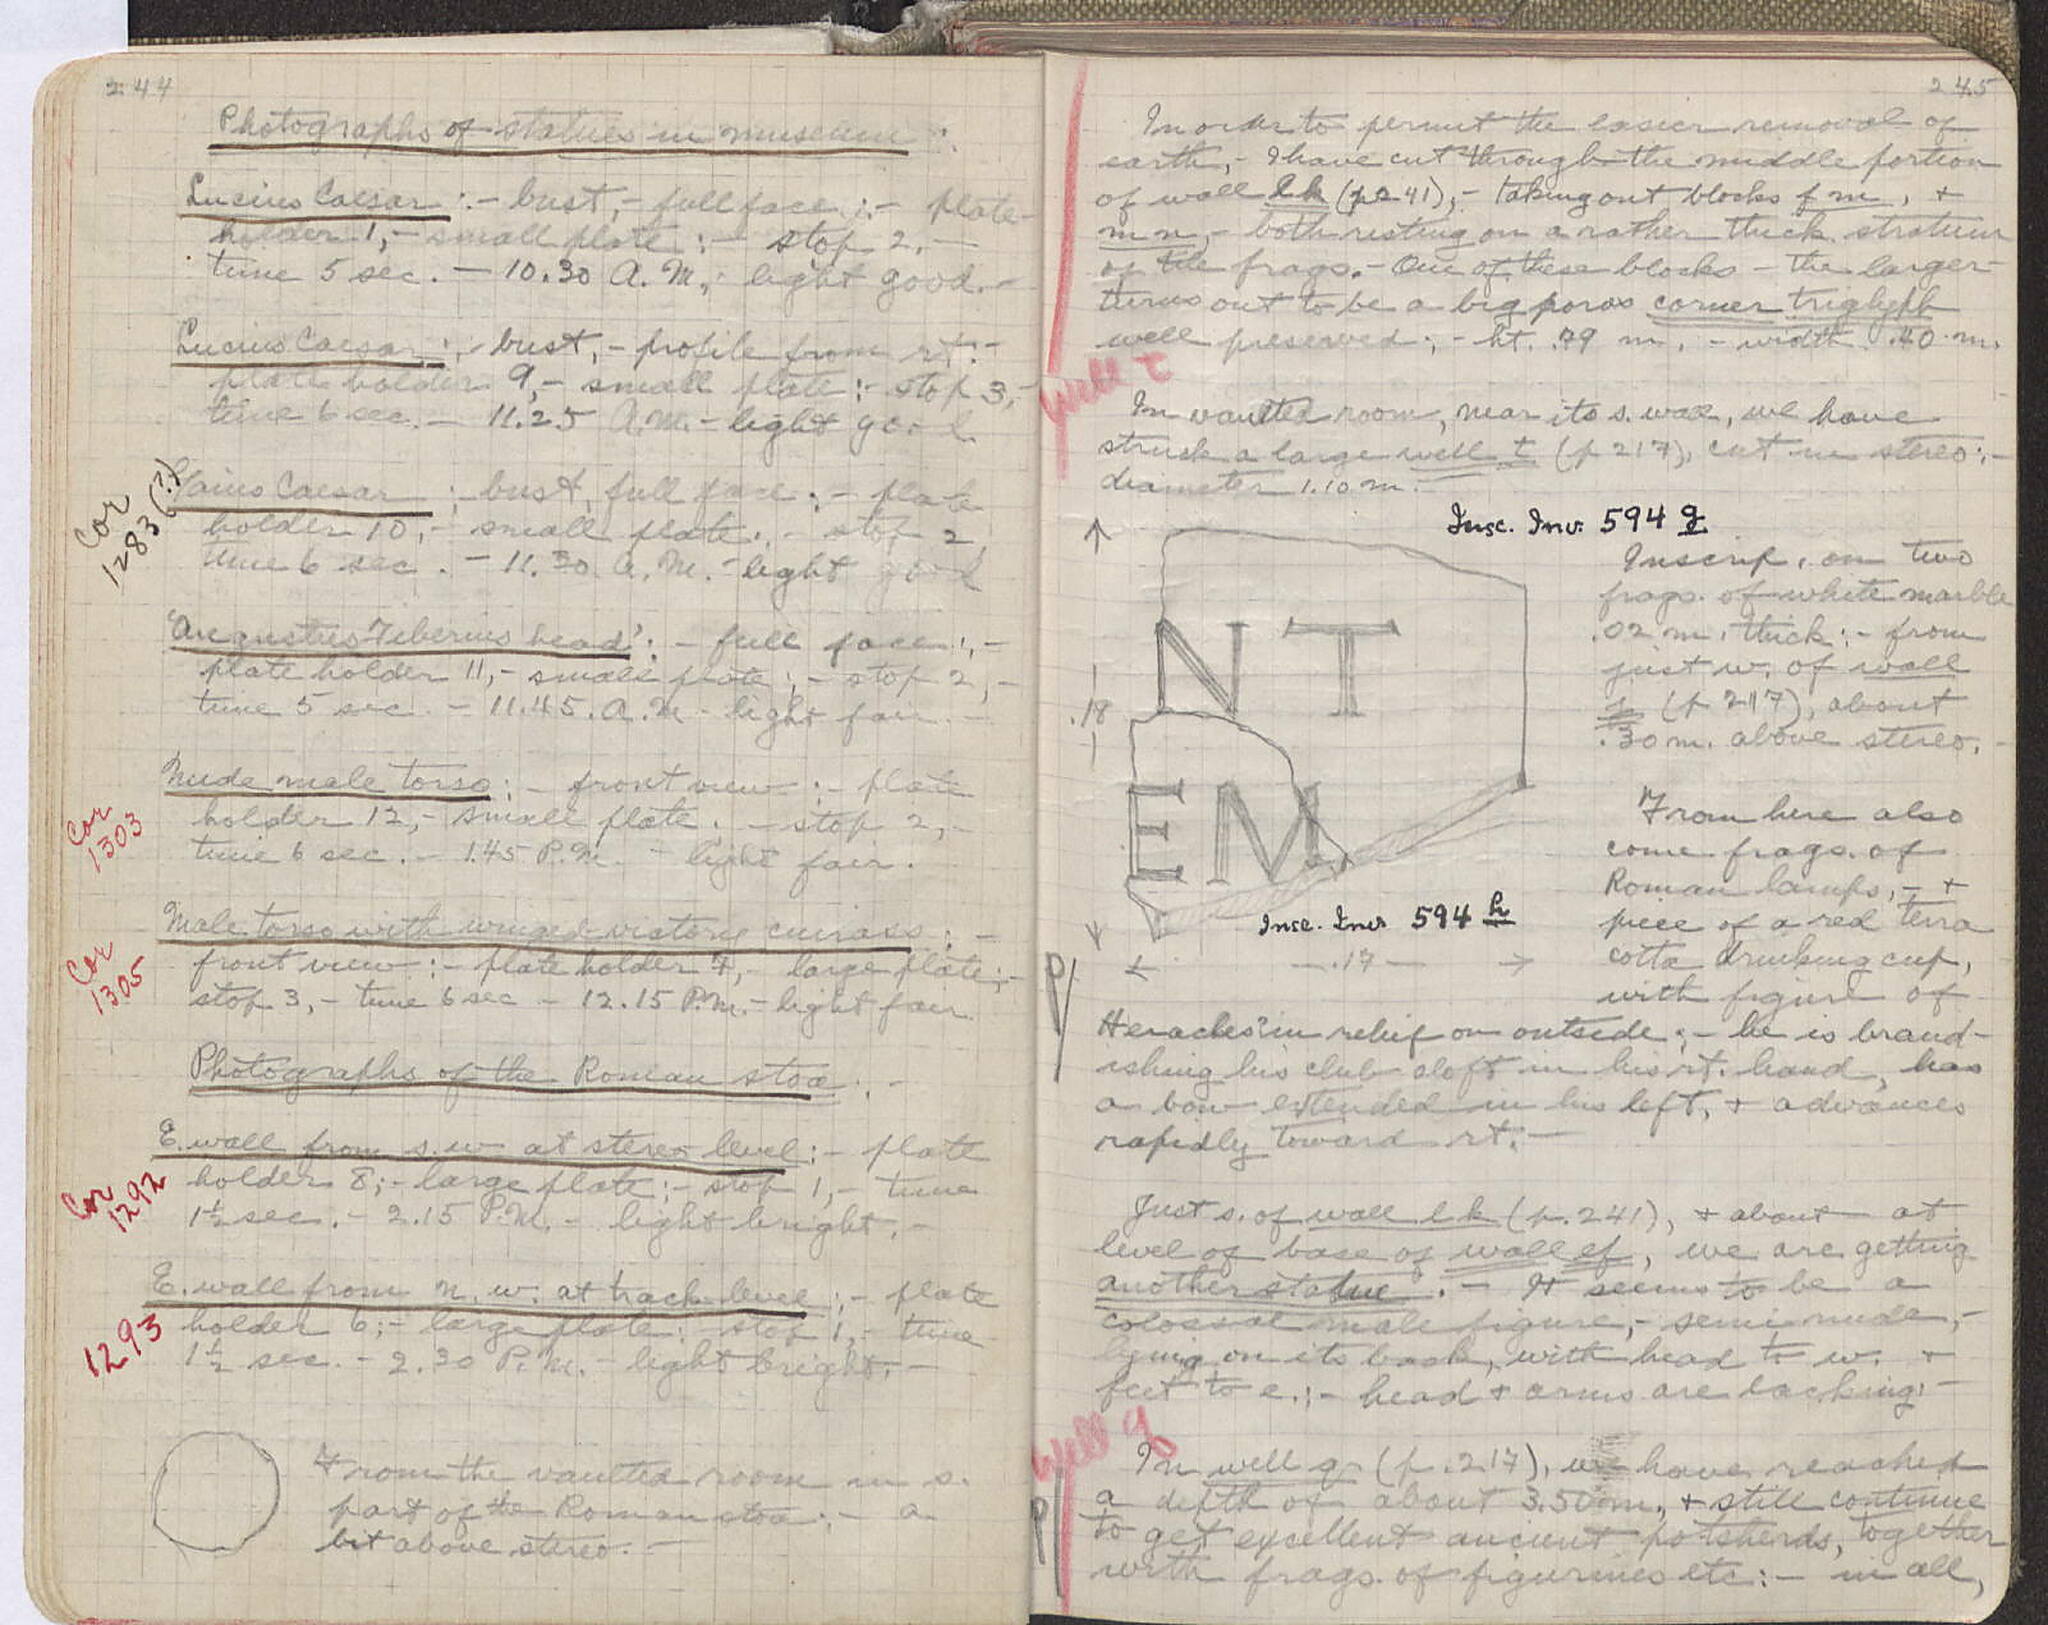 244
Photographs of statues in museum :
Lucius Caesar :- bust,- full face :- plate-
holder 1,- small plate :- stop 2,-
time 5 sec. - 10.30 A.M, light good.-
Lucius Caesar :- bust,- profile from rt.-
plate holder 9,- small plate :- stop 3,-
time 6 sec. - 11.25 A.M.- light good.
Cor
1283(?)
Gaius Caesar :- bust, full face :- plate
holder 10,- small plate :- stop 2,
time 6 sec. - 11.30 A.M.- light good
"Augustus Tiberius head" :- full face :,-
plate holder 11,- small plate ;- stop 2,-
time 5 sec. - 11.45. A.M - light fair.-
Nude male torso :- front view :- plate
Cor
1303
holder 12,- small plate. - stop 2,-
time 6 sec. - 1.45 P.M. - light fair.
Male torso with winged victory cuirass :-
Cor
1305
front view :- plate holder 7,- large plate;-
stop 3,- time 6 sec - 12.15 P.M.- light fair.
Photographs of the Roman stoa. -
E. wall from s.w at stereo level :- plate
Cor
1292
holder 8;- large plate ;- stop 1,- time
1½ sec. - 2.15 P.M. - light bright.-
E. wall from n.w. at track level ;- plate
1293
holder 6;- large plate. stop 1,- time
1½ sec. - 2.30 P.M. - light bright.-
From the vaulted room in s.
part of the Roman stoa ;- a
bit above stereo.-
245
In order to permit the easier removal of
earth,- I have cut through the middle portion
of wall lk (p 241),- taking out blocks fm, +
mn,- both resting on a rather thick stratum
of tile frags.- One of these blocks - the larger-
turns out to be a big poros corner triglyph
well preserved ;- ht. .79 m. - width .40 m.
Well t
In vaulted room, near its s. wall, we have
struck a large well t (p 217), cut in stereo ;-
diameter 1.10 m.-
Insc. Inv. 594 g
NT
EM
.18
.17
Insc. Inv. 594 h
Inscrip. on two
frags. of white marble
.02 m. thick :- from
just w. of wall
(p 217), about
.30 m. above stereo.-
From here also
come frags. of
Roman lamps,- +
piece of a red terra
cotta drinking cup,
P/
with figure of
Heracles? in relief on outside ;- he is brand-
ishing his club aloft in his rt. hand, has
a bow extended in his left, + advances
rapidly toward rt.-
Just s. of wall lk (p. 241), + about at
level of base of wall ef, we are getting
another statue. - It seems to be a
colossal male figure,- semi-nude,-
lying on its back, with head to w. +
feet to e. ;- head + arms are lacking.-
Well q
In well q (p. 217), we have reached
P/
a depth of about 3.50 m, + still continue
to get excellent ancient potsherds, together
with frags. of figurines etc :- in all,